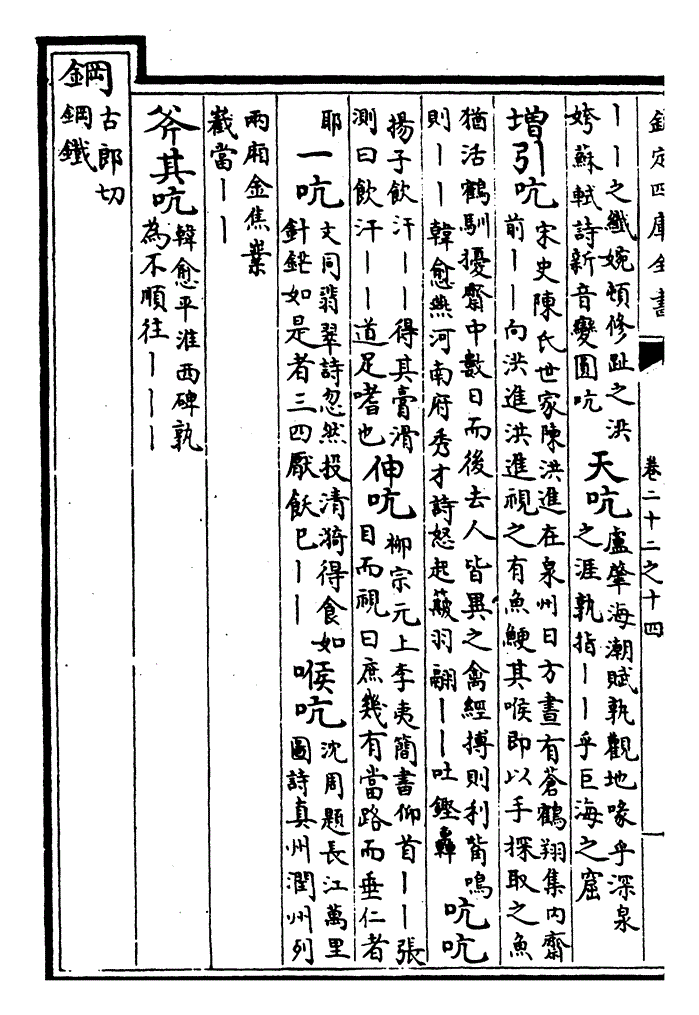 欽定四庫全書 卷二十二之十四 一
｜｜之纖婉頓修趾之洪
姱蘇軾詩新音變圓吭
天吭
盧肇海潮賦孰觀地喙乎深泉
之涯孰指｜｜乎巨海之窟
增引吭
宋史陳氏世家陳洪進在泉州日方晝有蒼鶴翔集內齋
前｜｜向洪進洪進視之有魚鯁其喉即以手探取之魚
猶活鶴馴擾齋中數日而後去人皆異之禽經搏則利觜鳴
則｜｜韓愈燕河南府秀才詩怒起簸羽翮｜｜吐鏗轟
吭吭
揚子飲汗｜｜得其膏滑
測曰飲汗｜｜道足嗜也
伸吭
柳宗元上李夷簡書仰首｜｜張
目而視曰庶幾有當路而垂仁者
耶
一吭
文同翡翠詩忽然投清漪得食如
針鋩如是者三四厭飫已｜｜
喉吭
沈周題長江萬里
圖詩真州潤州列
兩廂金焦嶪
截當｜｜
斧其吭
韓愈平淮西碑孰
為不順往｜｜｜
鋼
古郎切
鋼鐵